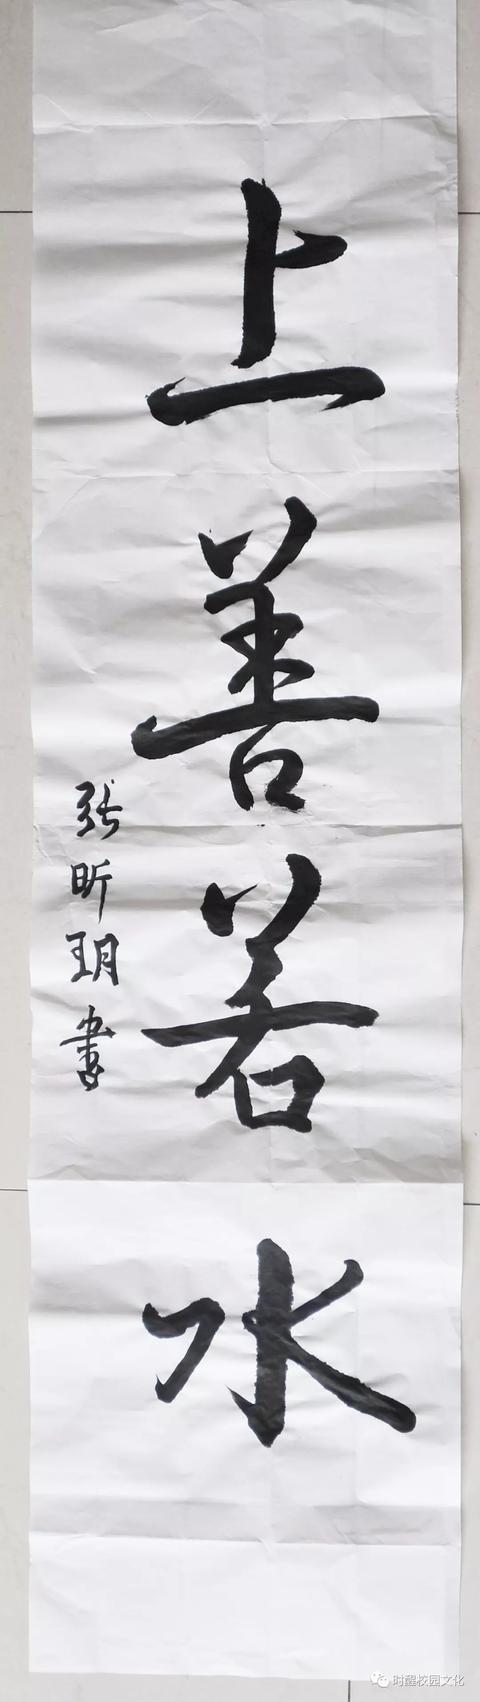 上善若水
张昕玥書
时醒校园文化